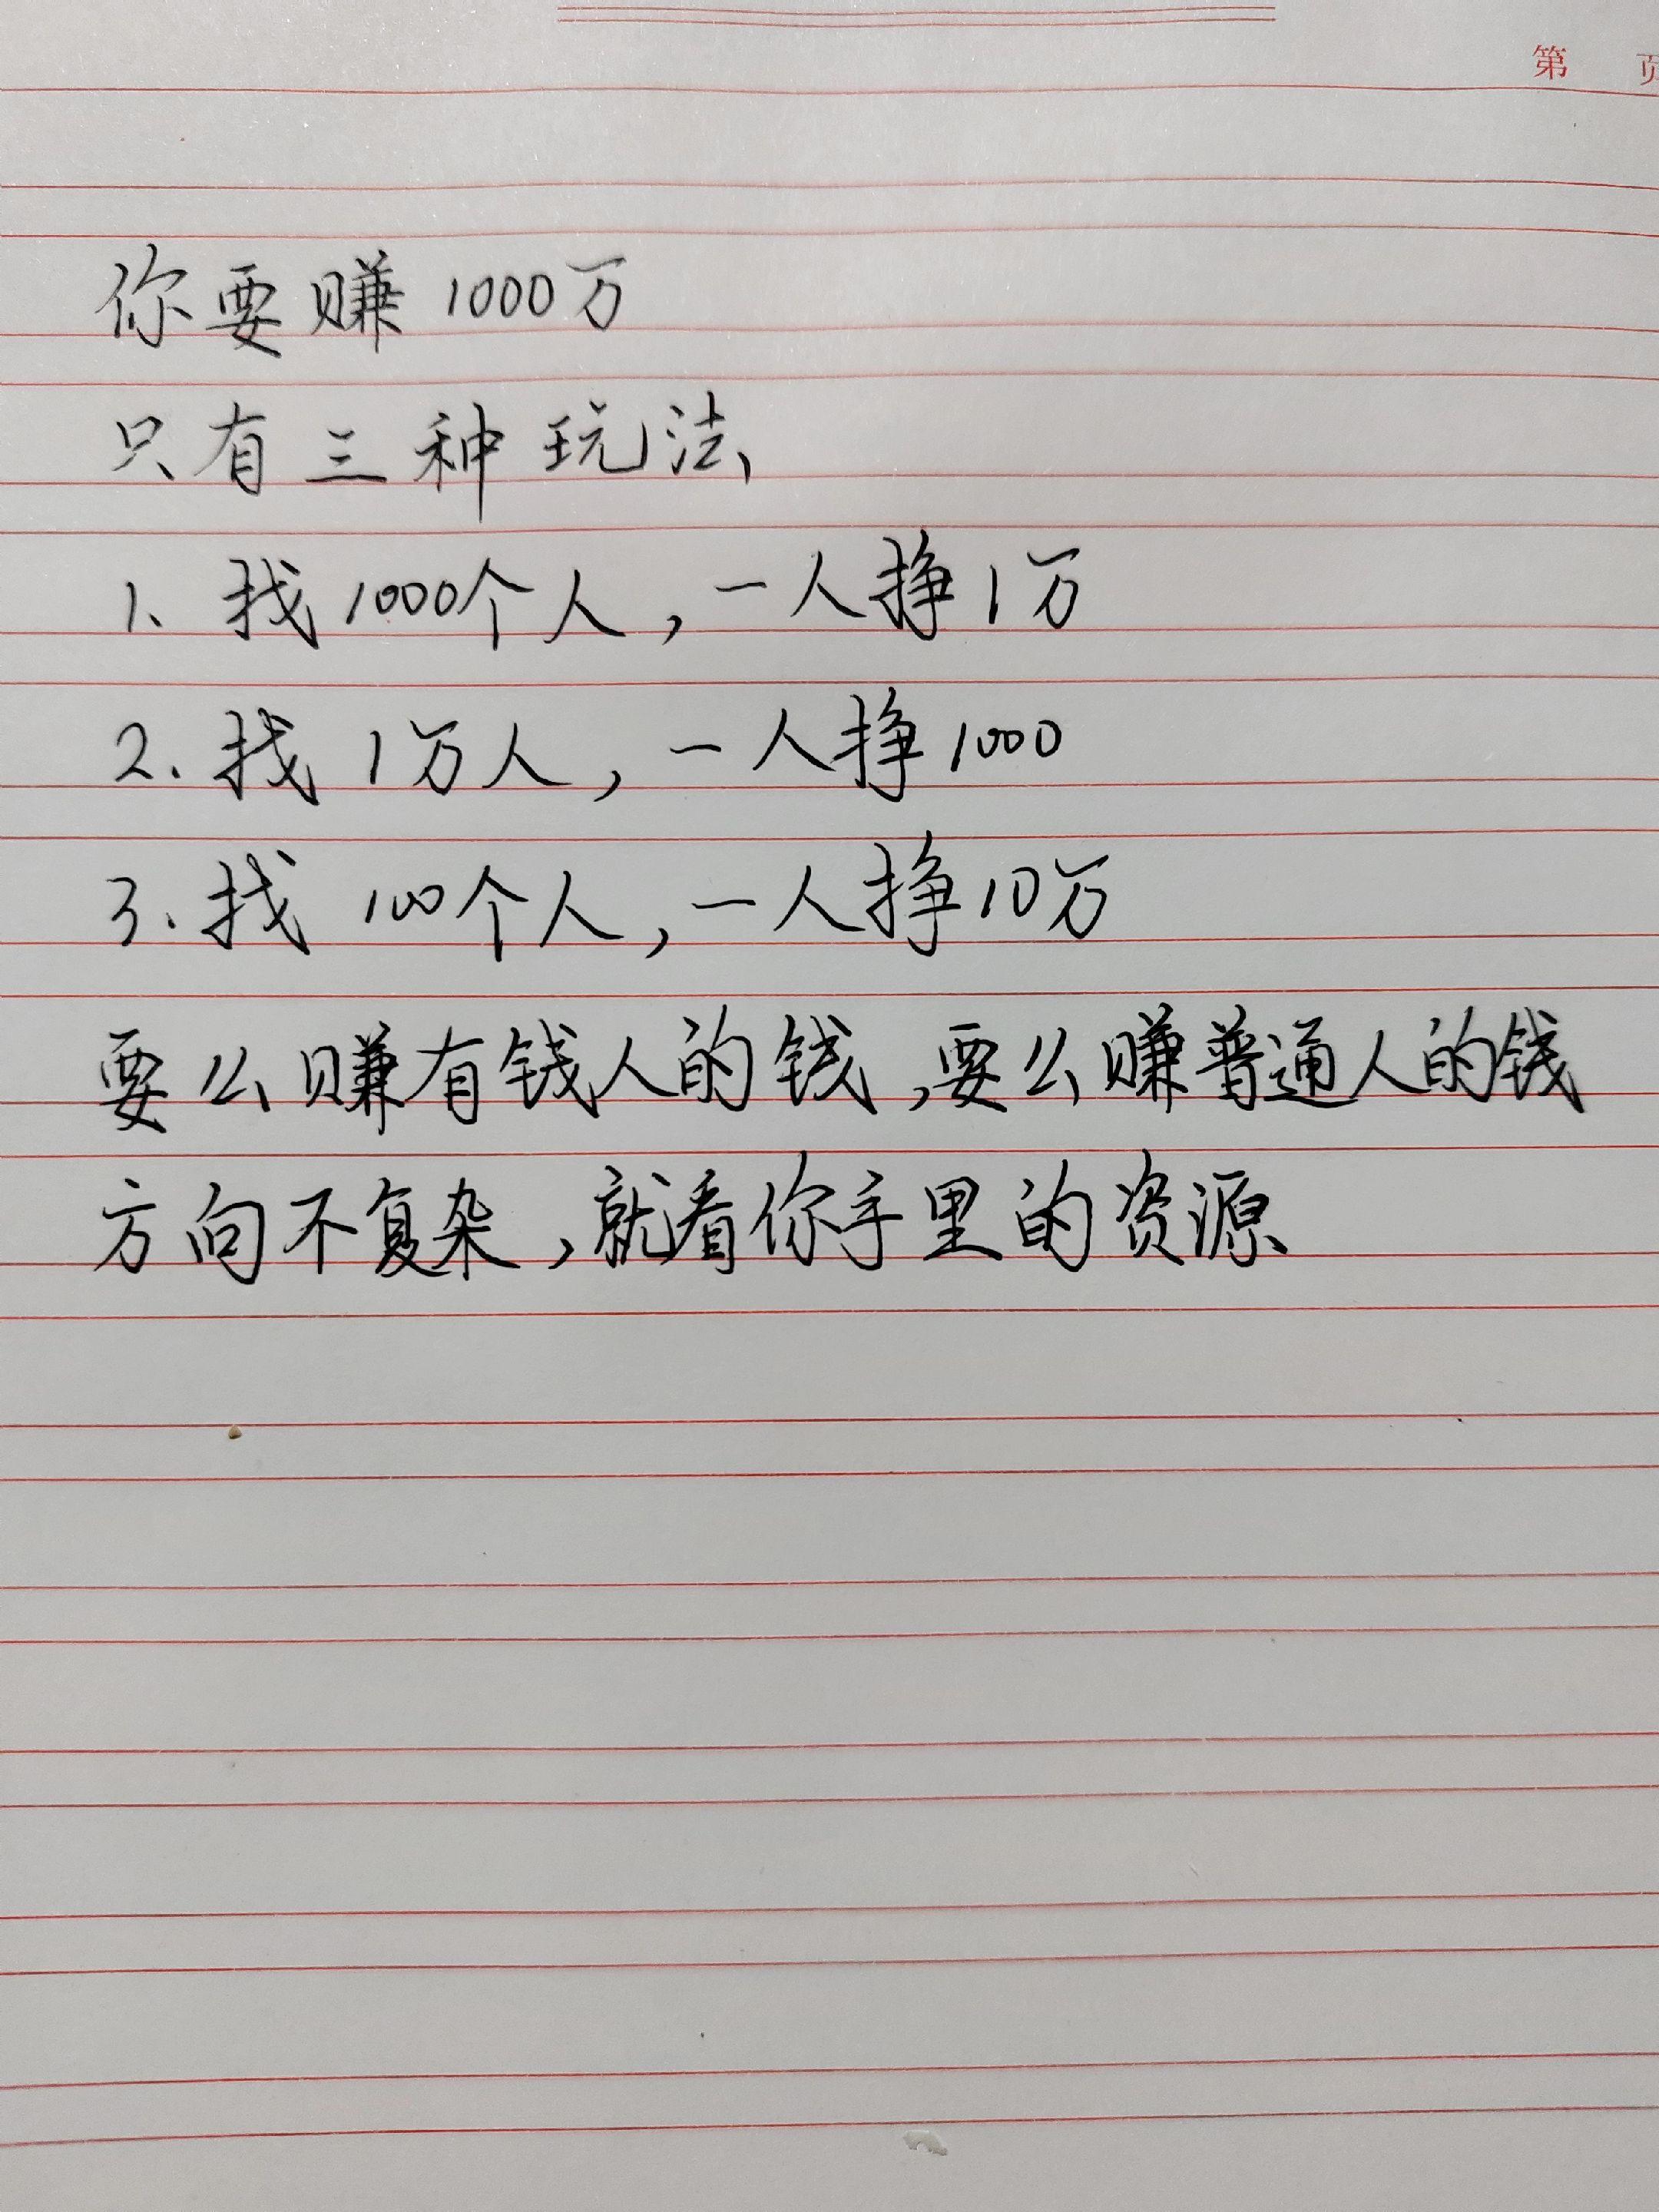 第 页
你要赚1000万
只有三种玩法、
1、找1000个人，一人挣1万
2.找1万人，一人挣1000
3.找100个人，一人挣10万
要么赚有钱人的钱，要么赚普通人的钱
方向不复杂，就看你手里的资源